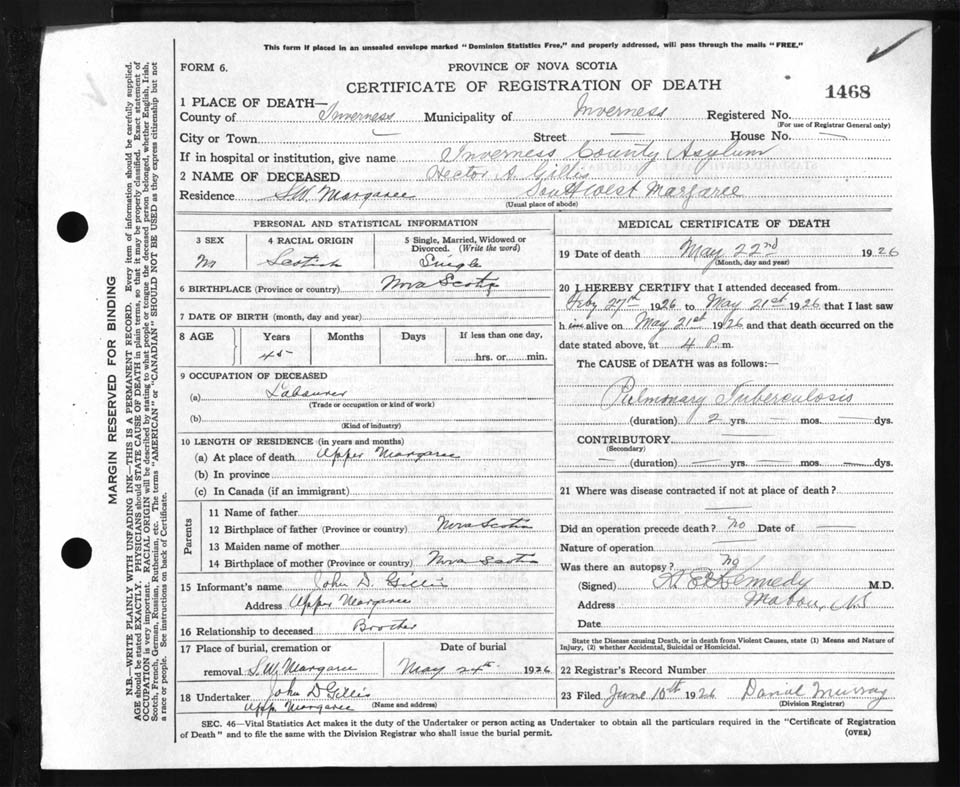 This form if placed in an unsealed envelope marked "Dominion Statistics Free," and properly addressed, will pass through the mails "FREE."
FORM 6.
PROVINCE OF NOVA SCOTIA
CERTIFICATE OF REGISTRATION OF DEATH
1468
1 PLACE OF DEATH—
County of Inverness Municipality of Inverness Registered No.
(For use of Registrar General only)
City or Town — Street — House No. —
If in hospital or institution, give name Inverness County Asylum
2 NAME OF DECEASED Hector A. Gillis
Residence S.W. Margaree South West Margaree
(Usual place of abode)
PERSONAL AND STATISTICAL INFORMATION
3 SEX
M
4 RACIAL ORIGIN
Scotish
5 Single, Married, Widowed or Divorced. (Write the word)
Single
6 BIRTHPLACE (Province or country) Nova Scotia
7 DATE OF BIRTH (month, day and year)
8 AGE Years Months Days If less than one day,
45 hrs. or min.
9 OCCUPATION OF DECEASED
(a) Labourer
(Trade or occupation or kind of work)
(b)
(Kind of industry)
10 LENGTH OF RESIDENCE (in years and months)
(a) At place of death Upper Margaree
(b) In province
(c) In Canada (if an immigrant)
Parents
11 Name of father
12 Birthplace of father (Province or country) Nova Scotia
13 Maiden name of mother
14 Birthplace of mother (Province or country) Nova Scotia
15 Informant's name John D. Gillis
Address Upper Margaree
16 Relationship to deceased Brother
17 Place of burial, cremation or
removal S.W. Margaree
Date of burial
May 24th 1926
18 Undertaker John D Gillis
Upp. Margaree (Name and address)
MEDICAL CERTIFICATE OF DEATH
19 Date of death May 22nd 1926
(Month, day and year)
20 I HEREBY CERTIFY that I attended deceased from
Feby 27th 1926 to May 21st 1926 that I last saw
h im alive on May 21st 1926 and that death occurred on the
date stated above, at 4 P. m.
The CAUSE of DEATH was as follows:
Pulmonary Tuberculosis
(duration) 2 yrs. — mos. — dys.
CONTRIBUTORY —
(Secondary)
— (duration) — yrs. — mos. — dys.
21 Where was disease contracted if not at place of death?
Did an operation precede death? no Date of —
Nature of operation —
Was there an autopsy? No
(Signed) Kennedy M.D.
Address Mabou, N.S
Date
State the Disease causing Death, or in death from Violent Causes, state (1) Means and Nature of
Injury, (2) whether Accidental, Suicidal or Homicidal.
22 Registrar's Record Number
23 Filed June 10th 1926 Daniel Murray
(Division Registrar)
SEC. 46—Vital Statistics Act makes it the duty of the Undertaker or person acting as Undertaker to obtain all the particulars required in the "Certificate of Registration
of Death" and to file the same with the Division Registrar who shall issue the burial permit.
(OVER)
MARGIN RESERVED FOR BINDING
N.B.—WRITE PLAINLY WITH UNFADING INK—THIS IS A PERMANENT RECORD. Every item of information should be carefully supplied.
AGE should be stated EXACTLY. PHYSICIANS should STATE CAUSE OF DEATH in plain terms, so that it may be properly classified. Exact statement of
OCCUPATION is very important. RACIAL ORIGIN will be described by stating to what people or tongue the deceased person belonged, whether English, Irish,
Scotch, French, German, Russian, Ruthenian, etc. The terms "AMERICAN" or "CANADIAN" SHOULD NOT BE USED as they express citizenship but not
a race or people. See instructions on back of Certificate.